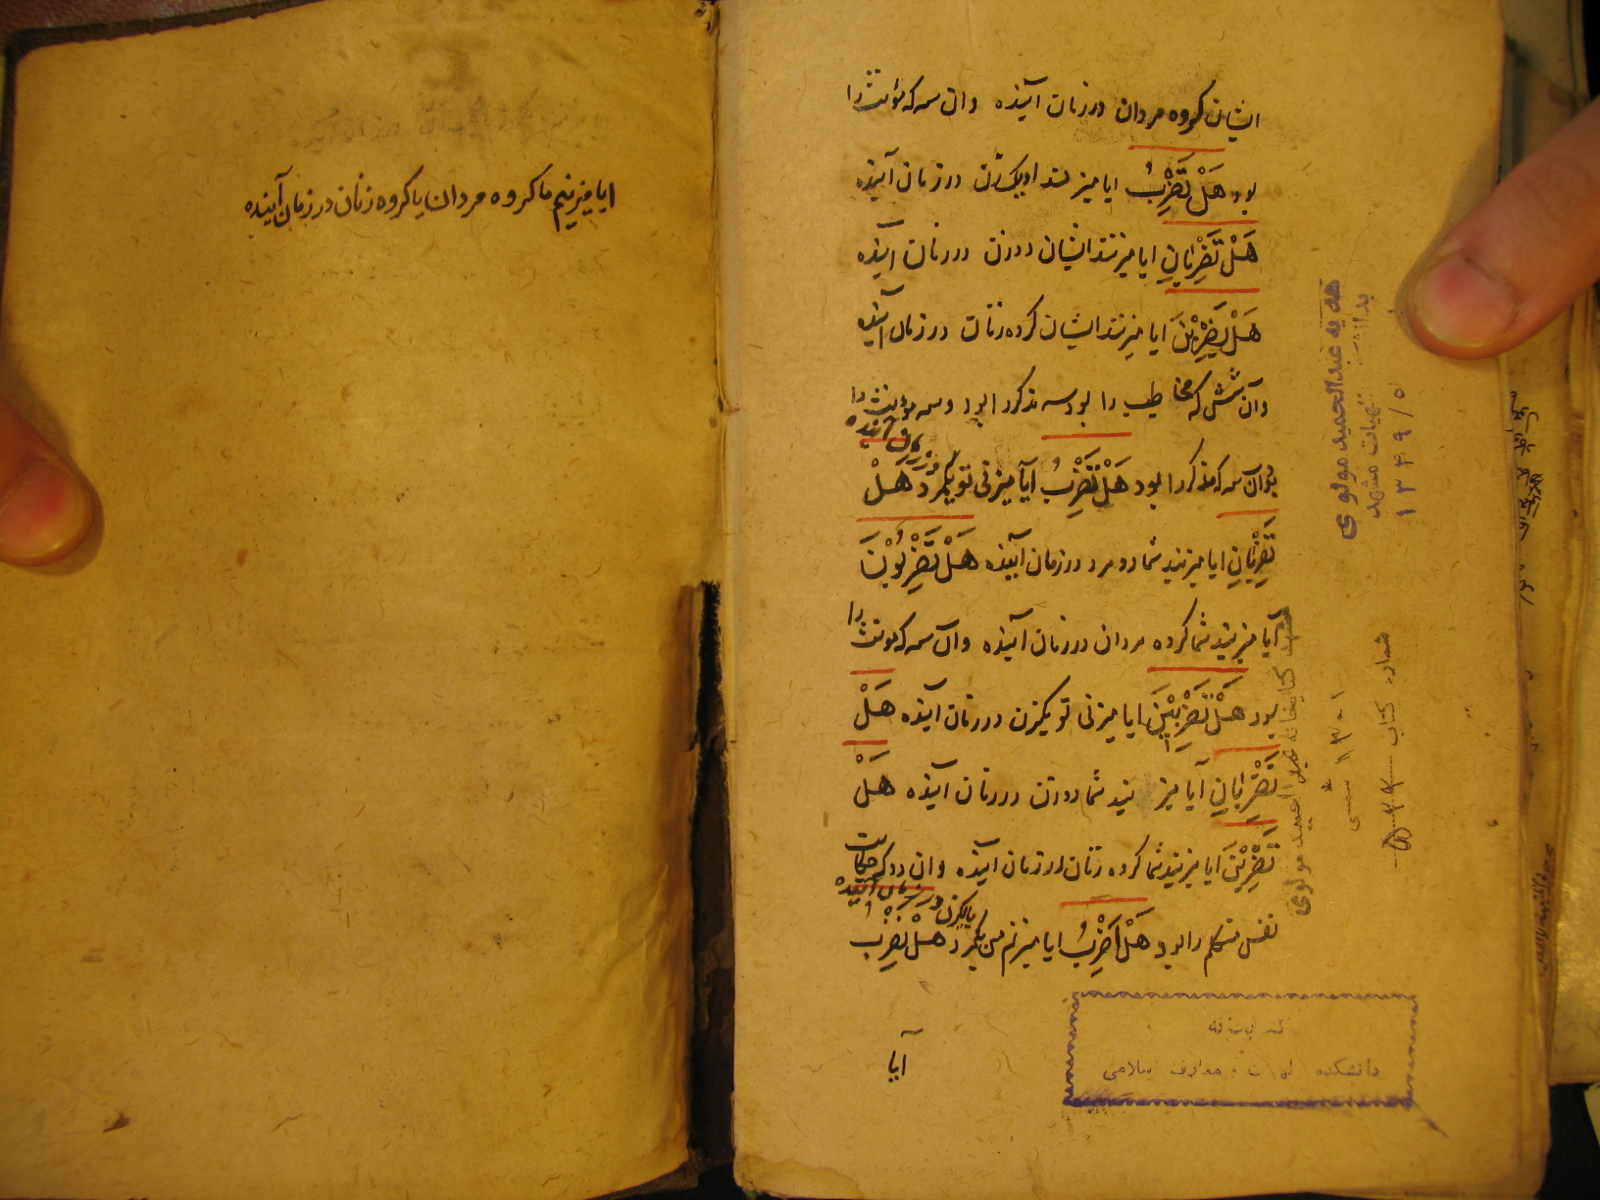 ایشان گروه مردان در زمان آینده وان سه که مؤنث را
بود هَلْ تَضْرِبُ ایا میزند او یک زن در زمان آینده
هَلْ تَضْرِبَانِ ایا میزنند ایشان دو زن در زمان آینده
هَلْ یَضْرِبْنَ ایا میزنند ایشان کروه زنان در زمان آینده
وآن شش که مخاطب را بود سه مذکر را بود و سه مؤنث را
بود آن سه که مذکر را بود هَلْ تَضْرِبُ آیا میزنی تو یکمرد هَلْ
در زمان آینده
تَضْرِبَانِ ایا میزنید شما دو مرد در زمان آینده هَلْ تَضْرِبُوْنَ
آیا میزنید شما کروه مردان در زمان آینده وآن سه که مونث را
بود هَلْ تَضْرِبِیْنَ ایا میزنی تو یکزن در زمان آینده هَلْ
تَضْرِبَانِ آیا میزنید شما دو زن در زمان آینده هَلْ
تَضْرِبْنَ ایا میزنید شما کروه زنان در زمان آینده وان دو که حکایت
نفس متکلم را بود هَلْ اَضْرِبُ ایا میزنم من یکمرد هَلْ نَضْرِبُ
یا یکزن در زمان آینده
آیا
ایا میزنیم ما کروه مردان یا کروه زنان در زمان آینده
هدیه عبدالحمید مولوی
بدانشکده الهیات مشهد
۱۳۴۹/۵
کتابخانه عبدالحمید مولوی
شماره کتاب
دانشکده الهیات و معارف اسلامی